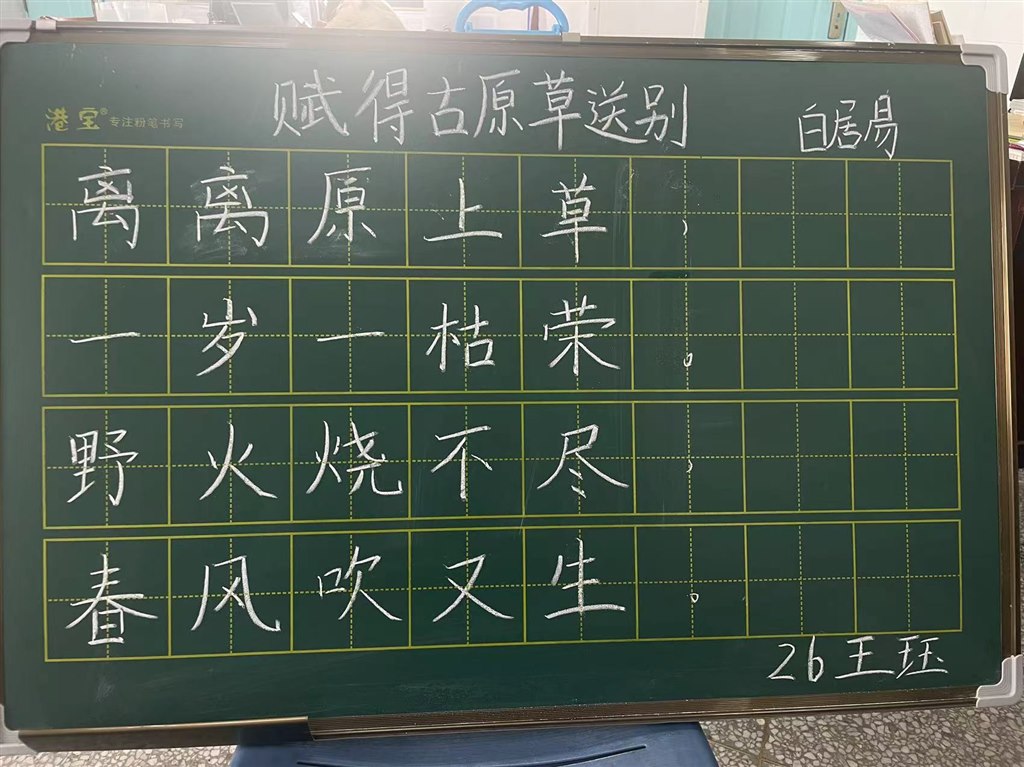 赋得古原草送别
白居易
港宝® 专注粉笔书写
离离原上草，
一岁一枯荣。
野火烧不尽，
春风吹又生。
26王珏